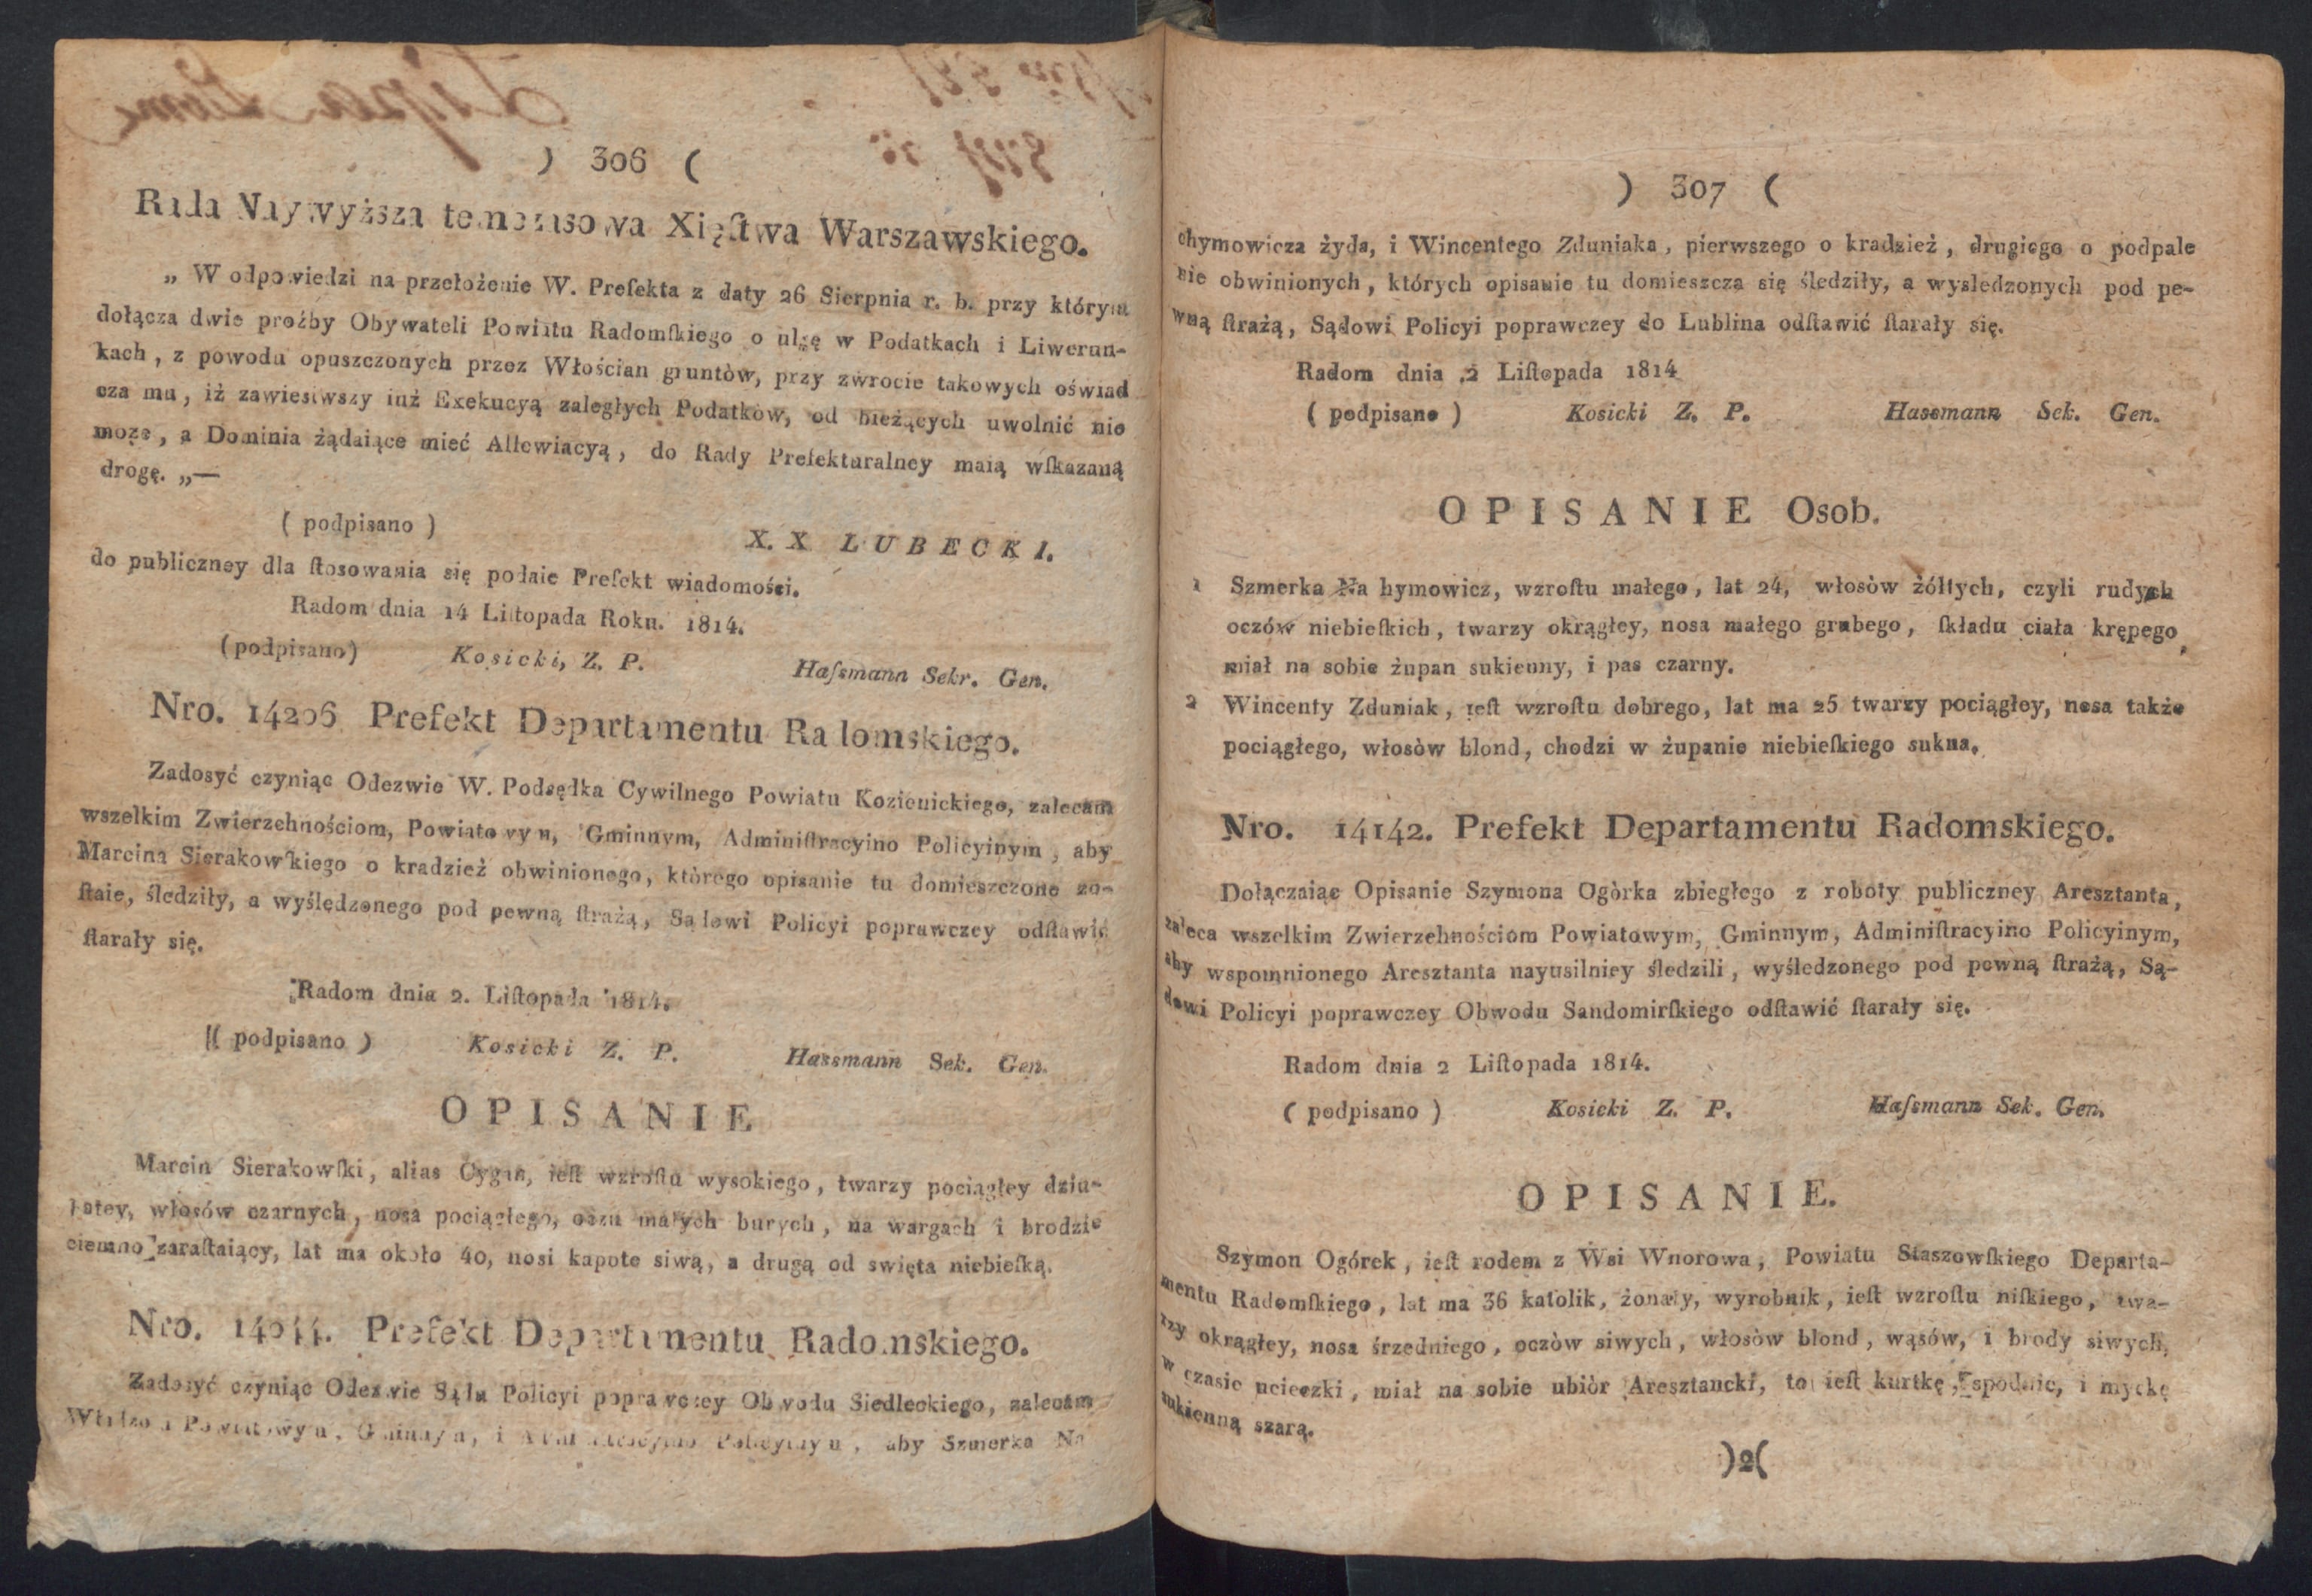 ) 306 (
Rada Naywyższa temczasowa Xięſtwa Warszawskiego.
„ W odpowiedzi na przełożenie W. Prefekta z daty 26 Sierpnia r. b. przy którym
dołącza dwie proźby Obywateli Powiatu Radomſkiego o ulgę w Podatkach i Liwerun-
kach, z powodu opuszczonych przez Włościan gruntòw, przy zwrocie takowych oświad
cza mu, iż zawiesiwszy iuż Exekucyą zaległych Podatków, od bieżących uwolnić nie
może, a Dominia żądaiące mieć Allewiacyą, do Rady Prefekturalney maią wſkazaną
drogę. „—
( podpisano )
X. X LUBECKI.
do publiczney dla ſtosowania się podaie Prefekt wiadomości.
Radom dnia 14 Liſtopada Roku. 1814.
(podpisano) Kosicki, Z. P. Haſsmann Sekr. Gen.
Nro. 14206 Prefekt Departamentu Radomskiego.
Zadosyć czyniąc Odezwie W. Podsędka Cywilnego Powiatu Kozienickiego, zalecam
wszelkim Zwierzchnościom, Powiatowym, Gminnym, Adminiſtracyino Policyinym, aby
Marcina Sierakowſkiego o kradzież obwinionego, którego opisanie tu domieszczone zo-
ſtaie, śledziły, a wyśledzonego pod pewną ſtrażą, Sądowi Policyi poprawczey odſtawić
ſtarały się.
Radom dnia 2. Liſtopada 1814.
( podpisano ) Kosicki Z. P. Hassmann Sek. Gen.
OPISANIE
Marcin Sierakowſki, alias Cygan, ieſt wzroſtu wysokiego, twarzy pociągłey dziu-
batey, włosów czarnych, nosa pociągłego, oczu małych burych, na wargach i brodzie
ciemno zaraſtaiący, lat ma około 40, nosi kapote siwą, a drugą od swięta niebieſką.
Nro. 14044. Prefekt Departamentu Radomskiego.
Zadosyć czyniąc Odezwie Sądu Policyi poprawczey Obwodu Siedleckiego, zalecam
Władzom Powiatowym, Gminnym, i Policyinym, aby Szmerka Na
) 307 (
chymowicza żyda, i Wincentego Zduniaka, pierwszego o kradzież, drugiego o podpale
nie obwinionych, których opisanie tu domieszcza się śledziły, a wysledzonych pod pe-
wną ſtrażą, Sądowi Policyi poprawczey do Lublina odſtawić ſtarały się.
Radom dnia 2 Liſtopada 1814
( podpisano ) Kosicki Z. P. Hassmann Sek. Gen.
OPISANIE Osob.
1 Szmerka Na hymowicz, wzroſtu małego, lat 24, włosòw żółtych, czyli rudych
oczów niebieſkich, twarzy okrągłey, nosa małego grubego, ſkładu ciała krępego,
miał na sobie żupan sukienny, i pas czarny.
2 Wincenty Zduniak, ieſt wzroſtu dobrego, lat ma 25 twarzy pociągłey, nosa także
pociągłego, włosòw blond, chodzi w żupanie niebieſkiego sukna.
Nro. 14142. Prefekt Departamentu Radomskiego.
Dołączaiąc Opisanie Szymona Ogòrka zbiegłego z roboty publiczney Aresztanta,
zaleca wszelkim Zwierzchnościom Powiatowym, Gminnym, Adminiſtracyino Policyinym,
aby wspomnionego Aresztanta nayusilniey śledzili, wyśledzonego pod pewną ſtrażą, Są-
dowi Policyi poprawczey Obwodu Sandomirſkiego odſtawić ſtarały się.
Radom dnia 2 Liſtopada 1814.
( podpisano ) Kosicki Z. P. Haſsmann Sek. Gen.
OPISANIE.
Szymon Ogórek, ieſt rodem z Wsi Wnorowa, Powiatu Staszowſkiego Departa-
mentu Radomſkiego, lat ma 36 katolik, żonaty, wyrobnik, ieſt wzroſtu niſkiego, twa-
rzy okrągłey, nosa śrzedniego, oczòw siwych, włosòw blond, wąsów, i brody siwych,
w czasie ucieczki, miał na sobie ubiòr Aresztancki, to ieſt kurtkę, spodnie, i myckę
sukienną szarą.
)2(